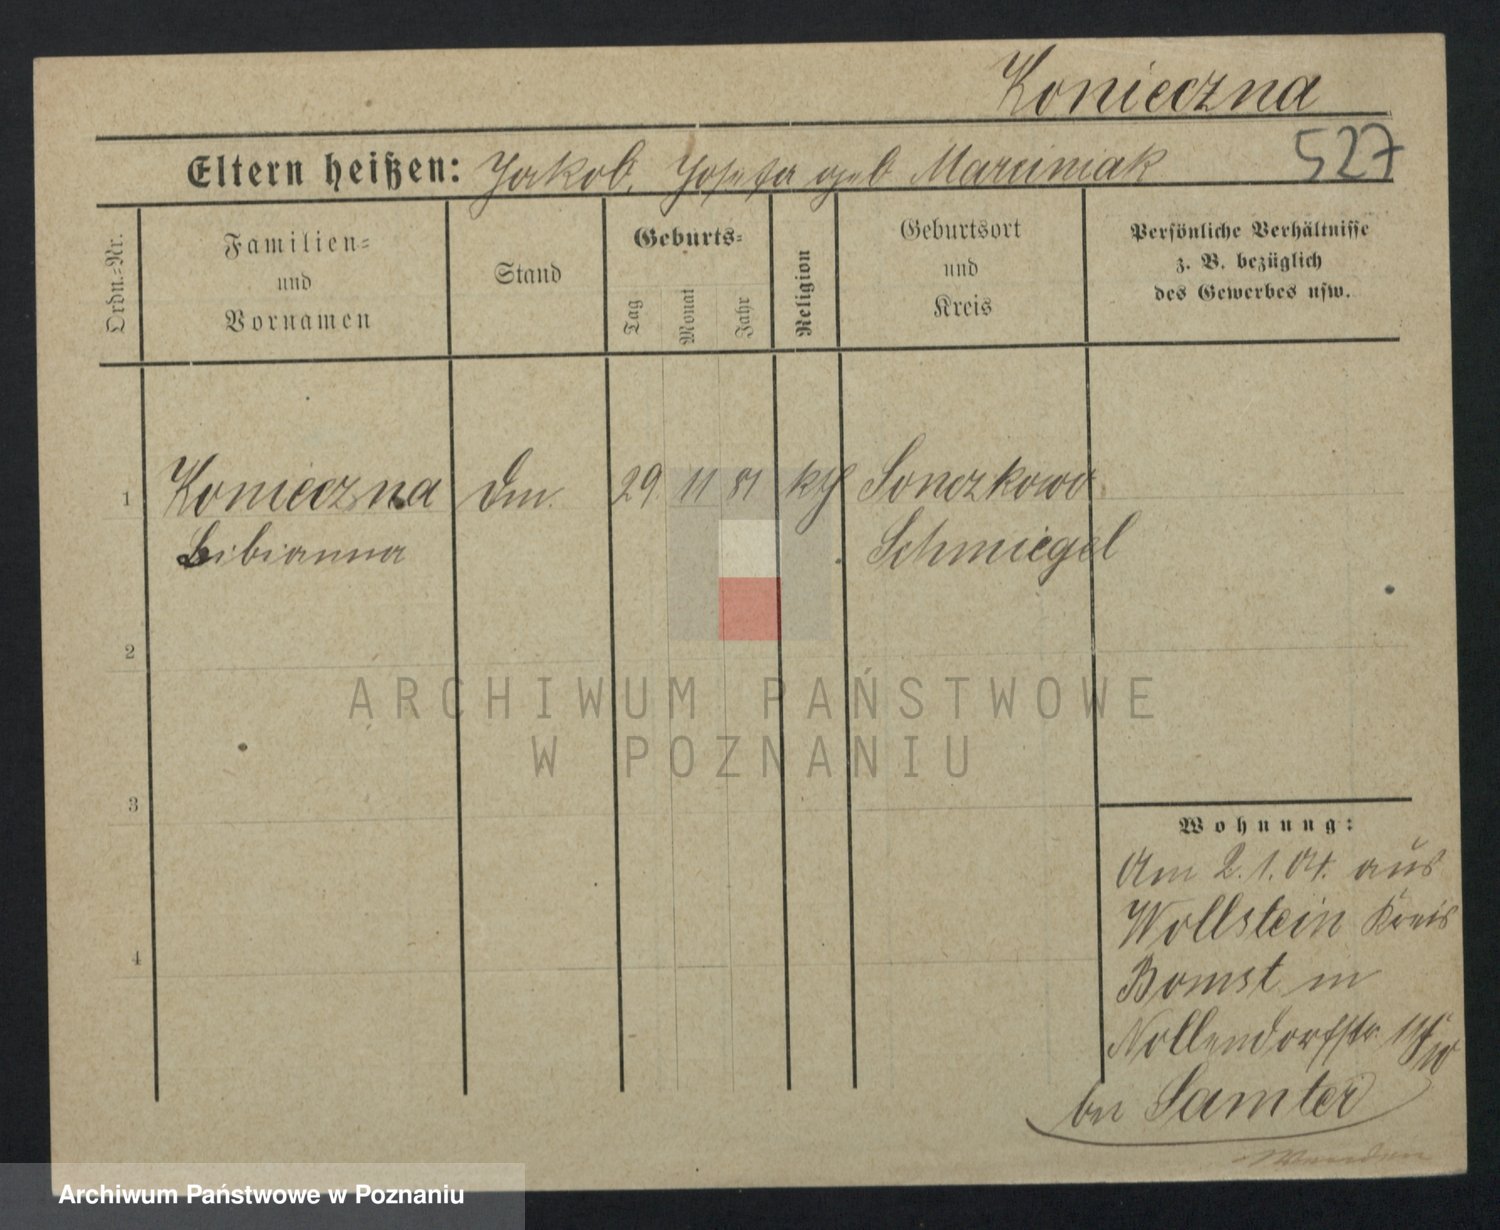 Konieczna
527
Eltern heißen: Jakob, Josefa geb Marciniak
Ordn.-Nr.
Familien-
und
Vornamen
Stand
Geburts-
Tag
Monat
Jahr
Religion
Geburtsort
und
Kreis
Persönliche Verhältnisse
z. B. bezüglich
des Gewerbes usw.
1 Konieczna 29 11 81 kth
Bibianna Schmiegel
2
3
4
Wohnung:
Am 2. 1. 04. aus
Wollstein Kreis
Bomst in
Nollendorfstr.
bei Samter
ARCHIWUM PAŃSTWOWE
W POZNANIU
Archiwum Państwowe w Poznaniu